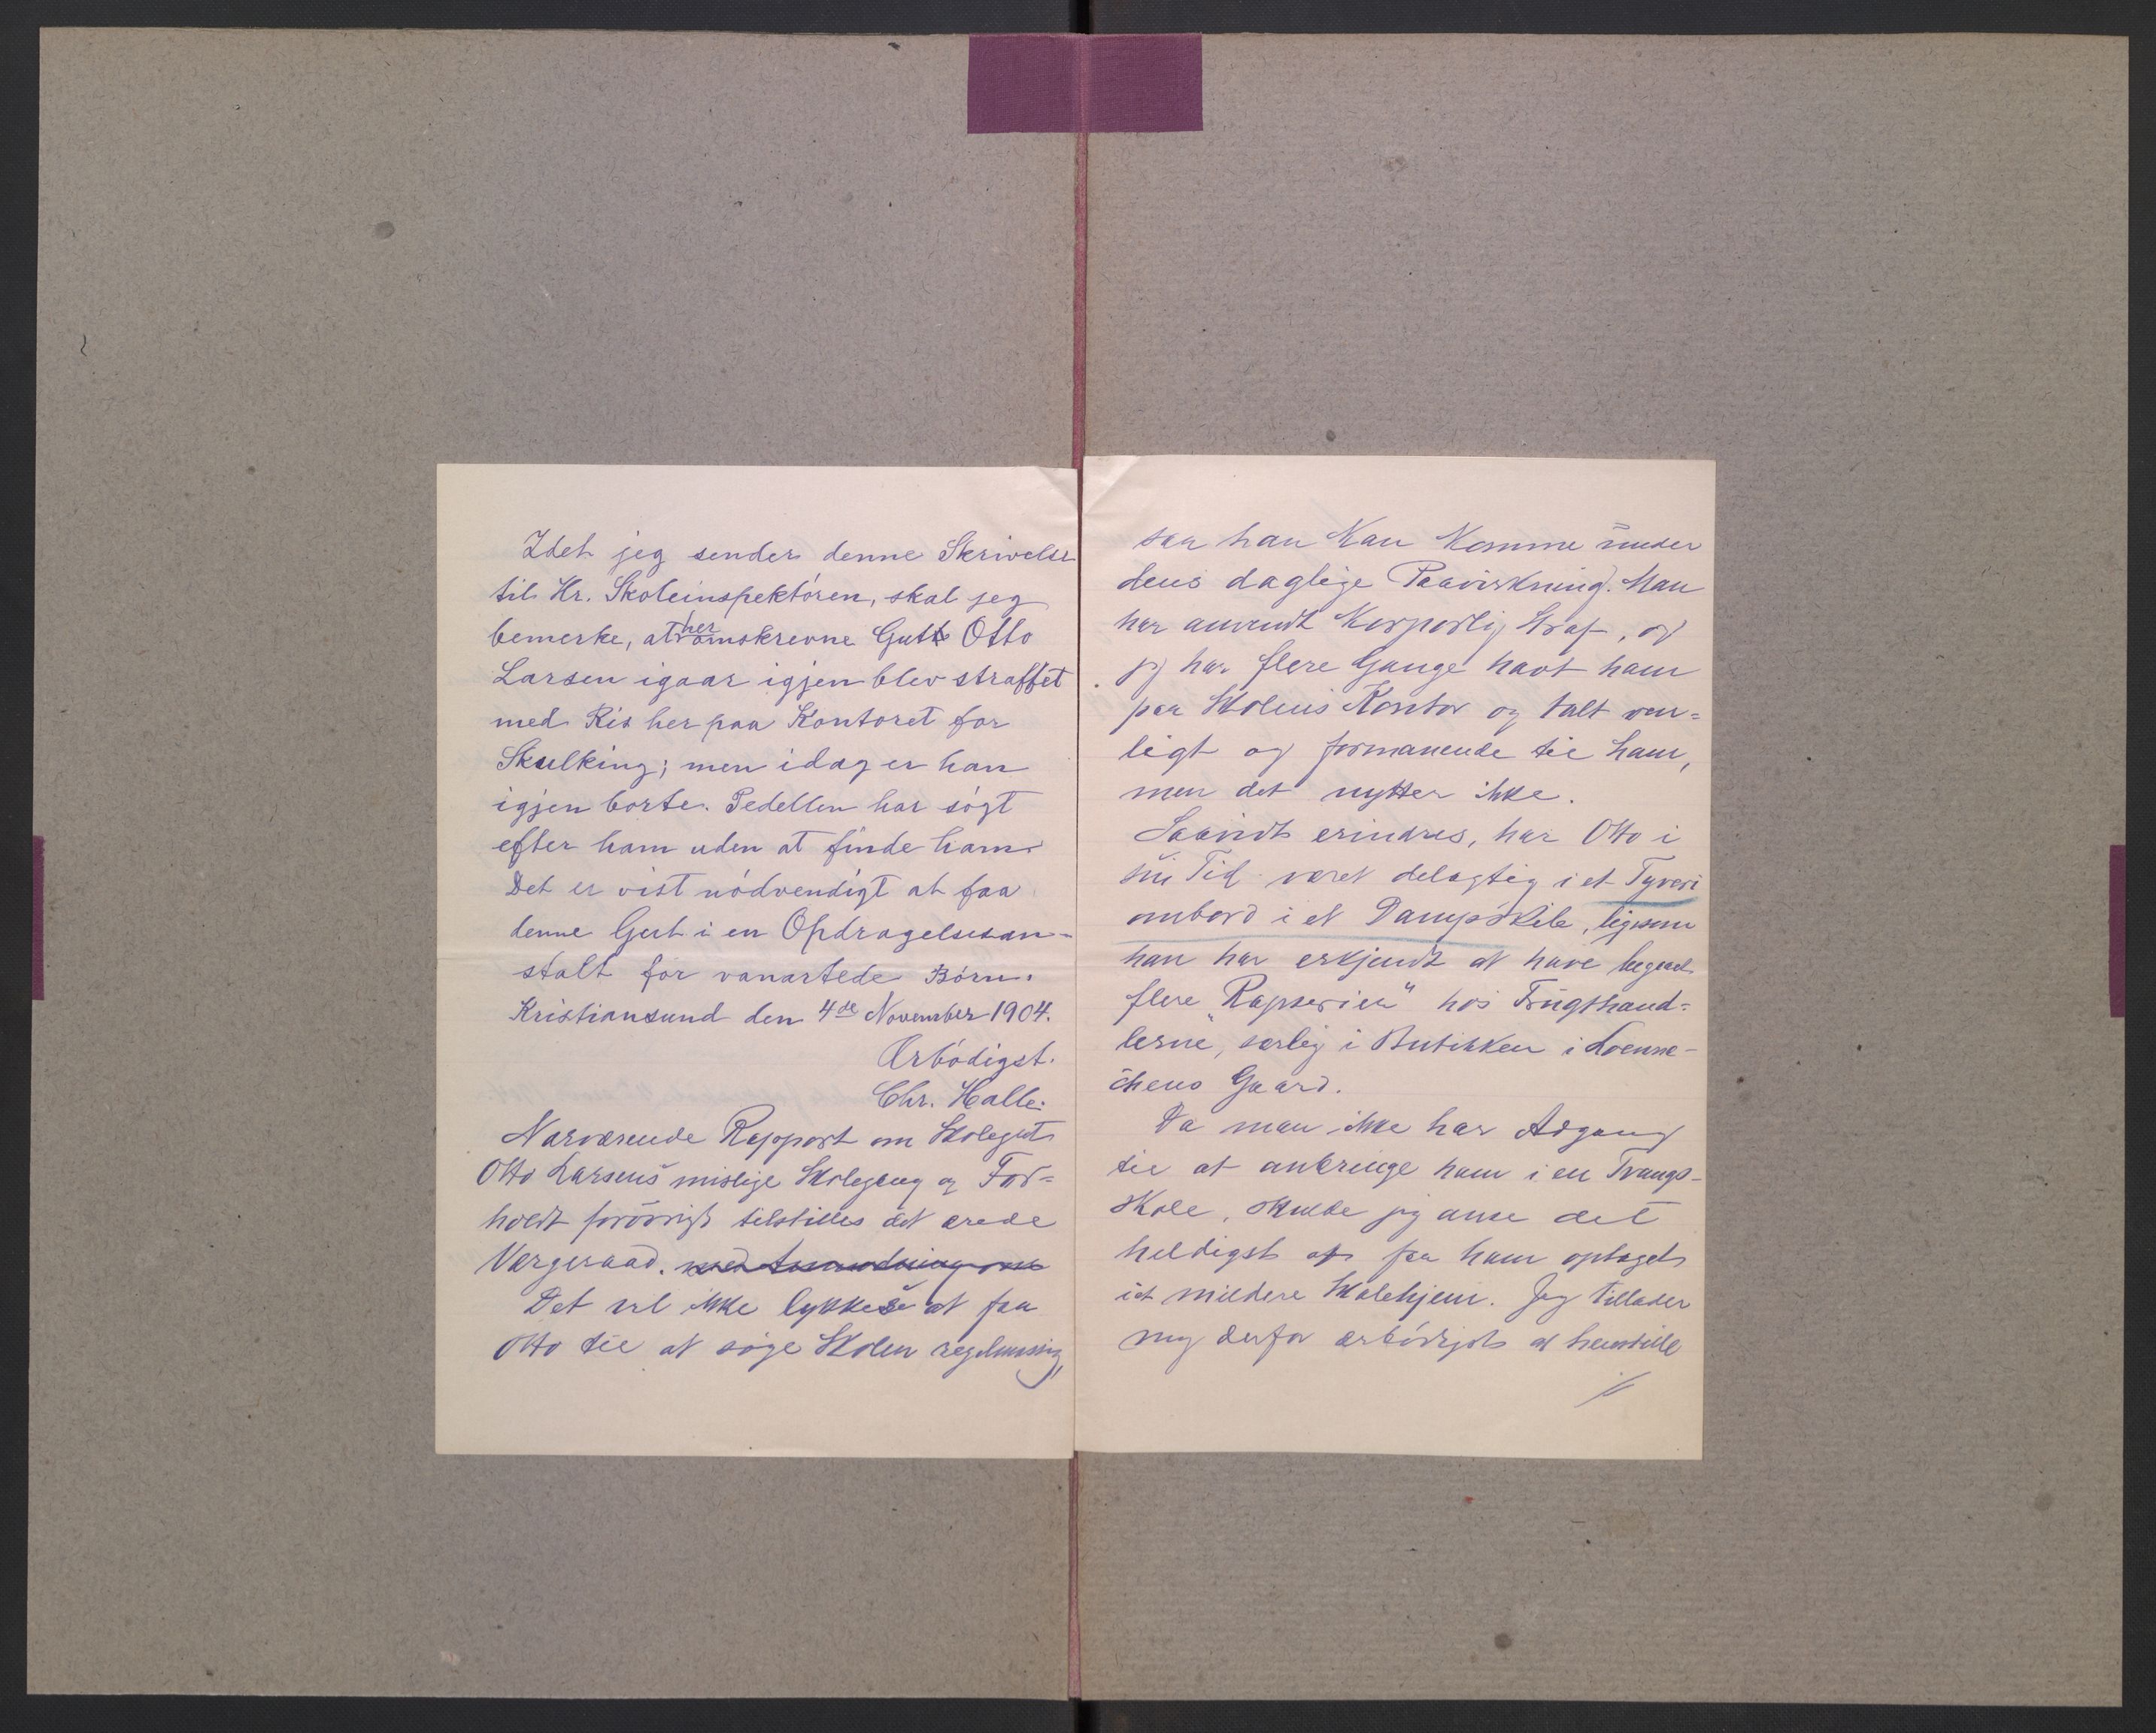 Idet jeg sender denne Skrivelse
til Hr. Skoleinspektören, skal jeg
bemerke, at her omskrevne Gutt Otto
Larsen igaar igjen blev straffet
med Ris her paa Kontoret for
Skulking; men idag er han
igjen borte. Pedellen har søgt
efter ham uden at finde ham.
Det er vist nødvendigt at faa
denne Gut i en Opdragelsesan=
stalt for vanartede Børn.
Kristiansund den 4de November 1904.
Ærbødigst.
Chr. Halle.
Nærværende Rapport om Skolegut
Otto Larsens mislige Skolegang og For=
hold forövrigt tilstilles det ærede
Værgeraad. med Anmodning om
Det vil ikke lykkes at faa
Otto til at søge Skolen regelmæssig,
saa han kan komme under
dens daglige Paavirkning. Man
har anvendt Korporlig Straf, og
jeg har flere Gange havt ham
paa Skolens Kontor og talt ven=
ligt og formanende til ham,
men det nytter ikke.
Saavidt erindres, har Otto i
sin Tid været delagtig i et Tyveri
ombord i et Dampskib, ligesom
han har erkjendt at have begaaet
flere "Rapserier" hos Frugthand=
lerne, særlig i Butikken i Loenne-
chens Gaard.
Da man ikke har Adgang
til at anbringe ham i en Tvangs-
skole, skulde jeg anse det
heldigst at faa ham optaget
i et mildere Skolehjem. Jeg tillader
mig derfor ærbødigst at henstille